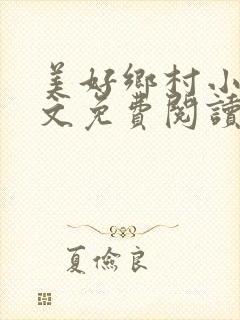 美好鄉村小
文免費閱讀
夏儉良